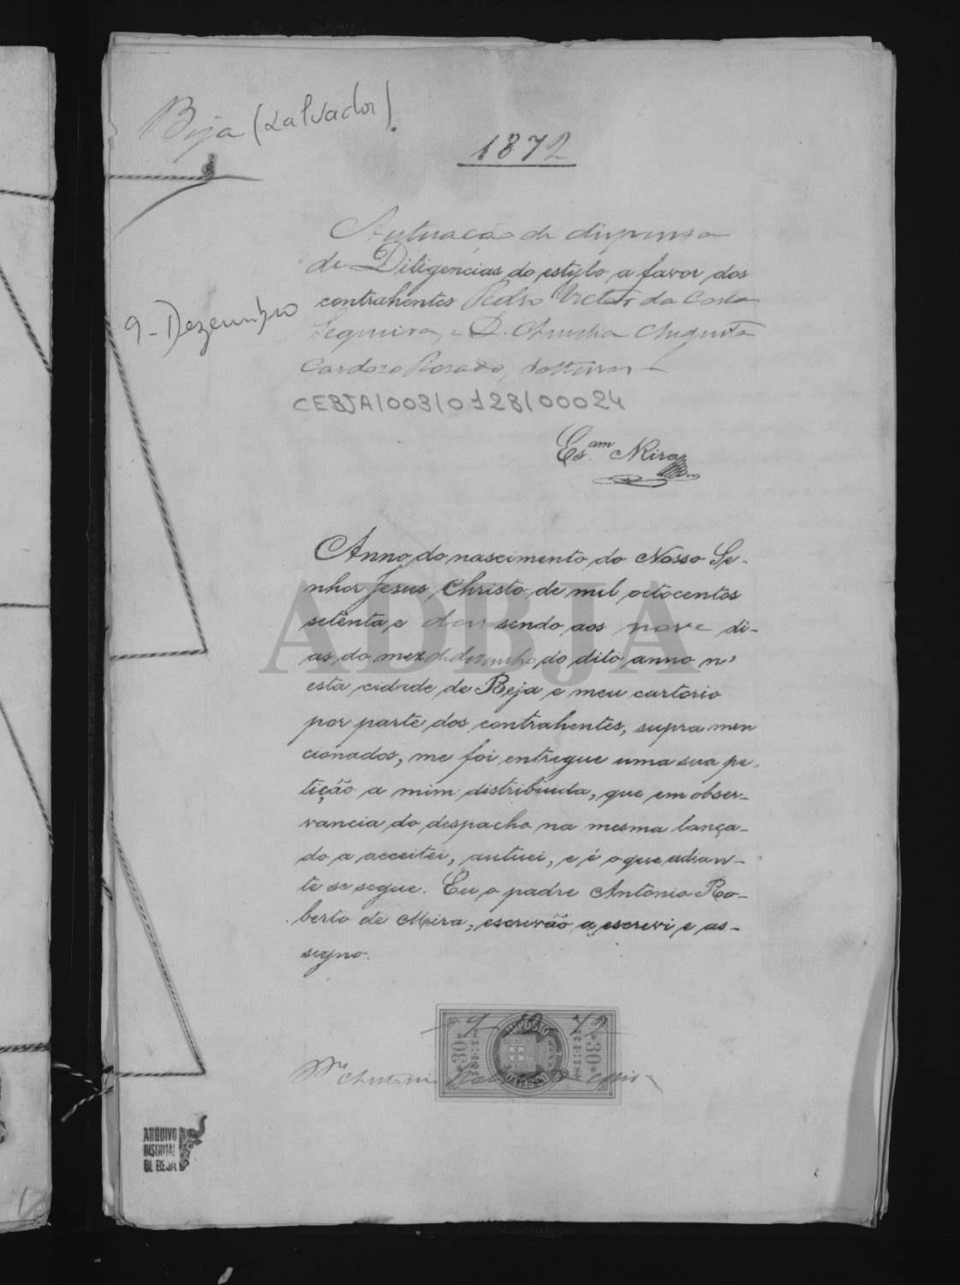 Beja (Salvador).
1872
Autuação de dispensa
de Diligencias do estylo a favor dos
9 - Dezembro
contrahentes Pedro Victor da Costa
Sequeira, e D. Amelia Augusta
Cardozo Rosado, solteiros
CEBJA/003/0128/00024
Es.am Mira
Anno do nascimento do Nosso Se-
nhor Jesus Christo de mil octocentos
setenta e dous sendo aos nove di-
as do mez de dezembro do dito anno n'
esta cidade de Beja e meu cartorio
por parte dos contrahentes, supra men
cionados, me foi entregue uma sua pe-
tição a mim distribuida, que em obser-
vancia do despacho na mesma lança-
do a acceitei, autuei, e é o que adian-
te se segue. Eu o padre Antonio Ro-
berto de Mira, escrivão a escrevi e as-
signo.
9 12 72
IMPOSTO
30 REIS
30 REIS
Pe Antonio Roberto de Mira
ARQUIVO
DISTRITAL
DE BEJA
ADBJA